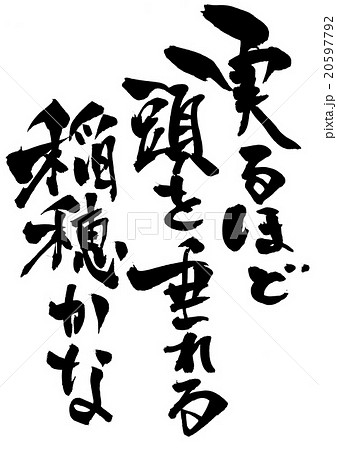 実るほど
頭を垂れる
稲穂かな
PIXTA
pixta.jp - 20597792